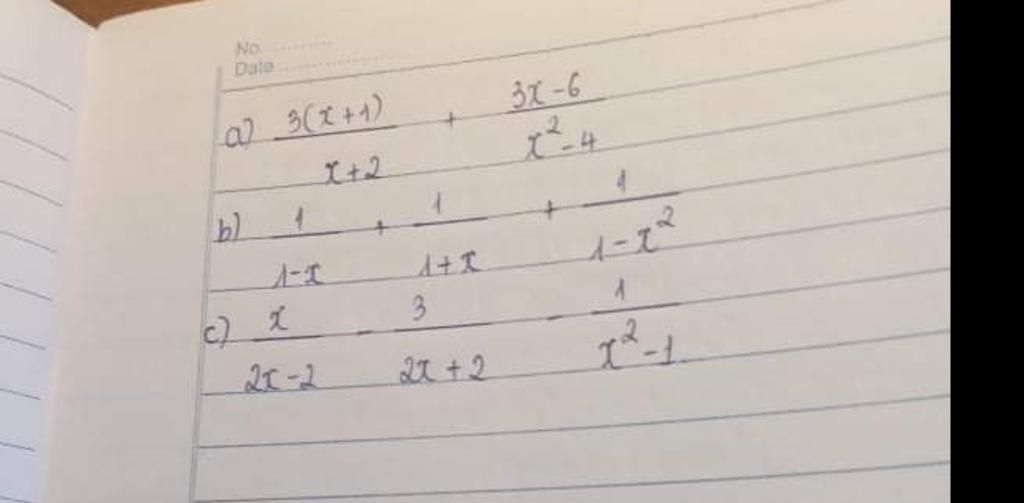 No. ............
Date ....................
a) \frac{3(x+1)}{x+2} + \frac{3x-6}{x^2-4}
b) \frac{1}{1-x} + \frac{1}{1+x} + \frac{1}{1-x^2}
c) \frac{x}{2x-2} - \frac{3}{2x+2} - \frac{1}{x^2-1}